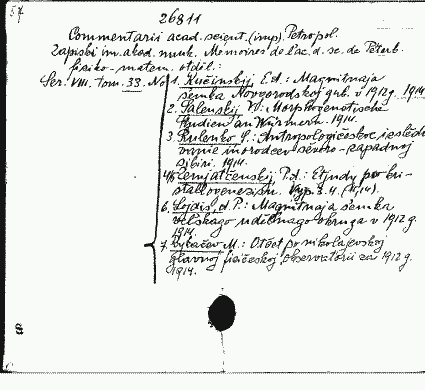 57
26811
Commentarii acad. scient. (imp). Petropol.
Zapiski im. akad. nauk. Mémoires de l'ac. d. sc. de Péterb.
fisiko-matem. otděl.:
Ser. VIII. tom. 33. No 1. Kučinskij, Ed.: Magnitnaja
semka Novgorodskoj gub. v 1912 g. 1914
2. Salenskij W.: Morphogenetische
Studien an Würmern. 1914.
3. Rudenko S.: Antropologičeskoe izslědo
vanie inorodcev sěvero-zapadnoj
Sibiri. 1914.
Zemjatčenskij P. d.: Etjudy po kri-
stallogenezisu. Vyp. 3. 4. (1914).
6. Lojdis, d. P.: Magnitnaja semka
udělnago okruga v 1912 g.
1914.
7. Rykačev M.: Otčet po nikolajevskoj
glavnoj fizičeskoj observatorii za 1912 g.
1914.